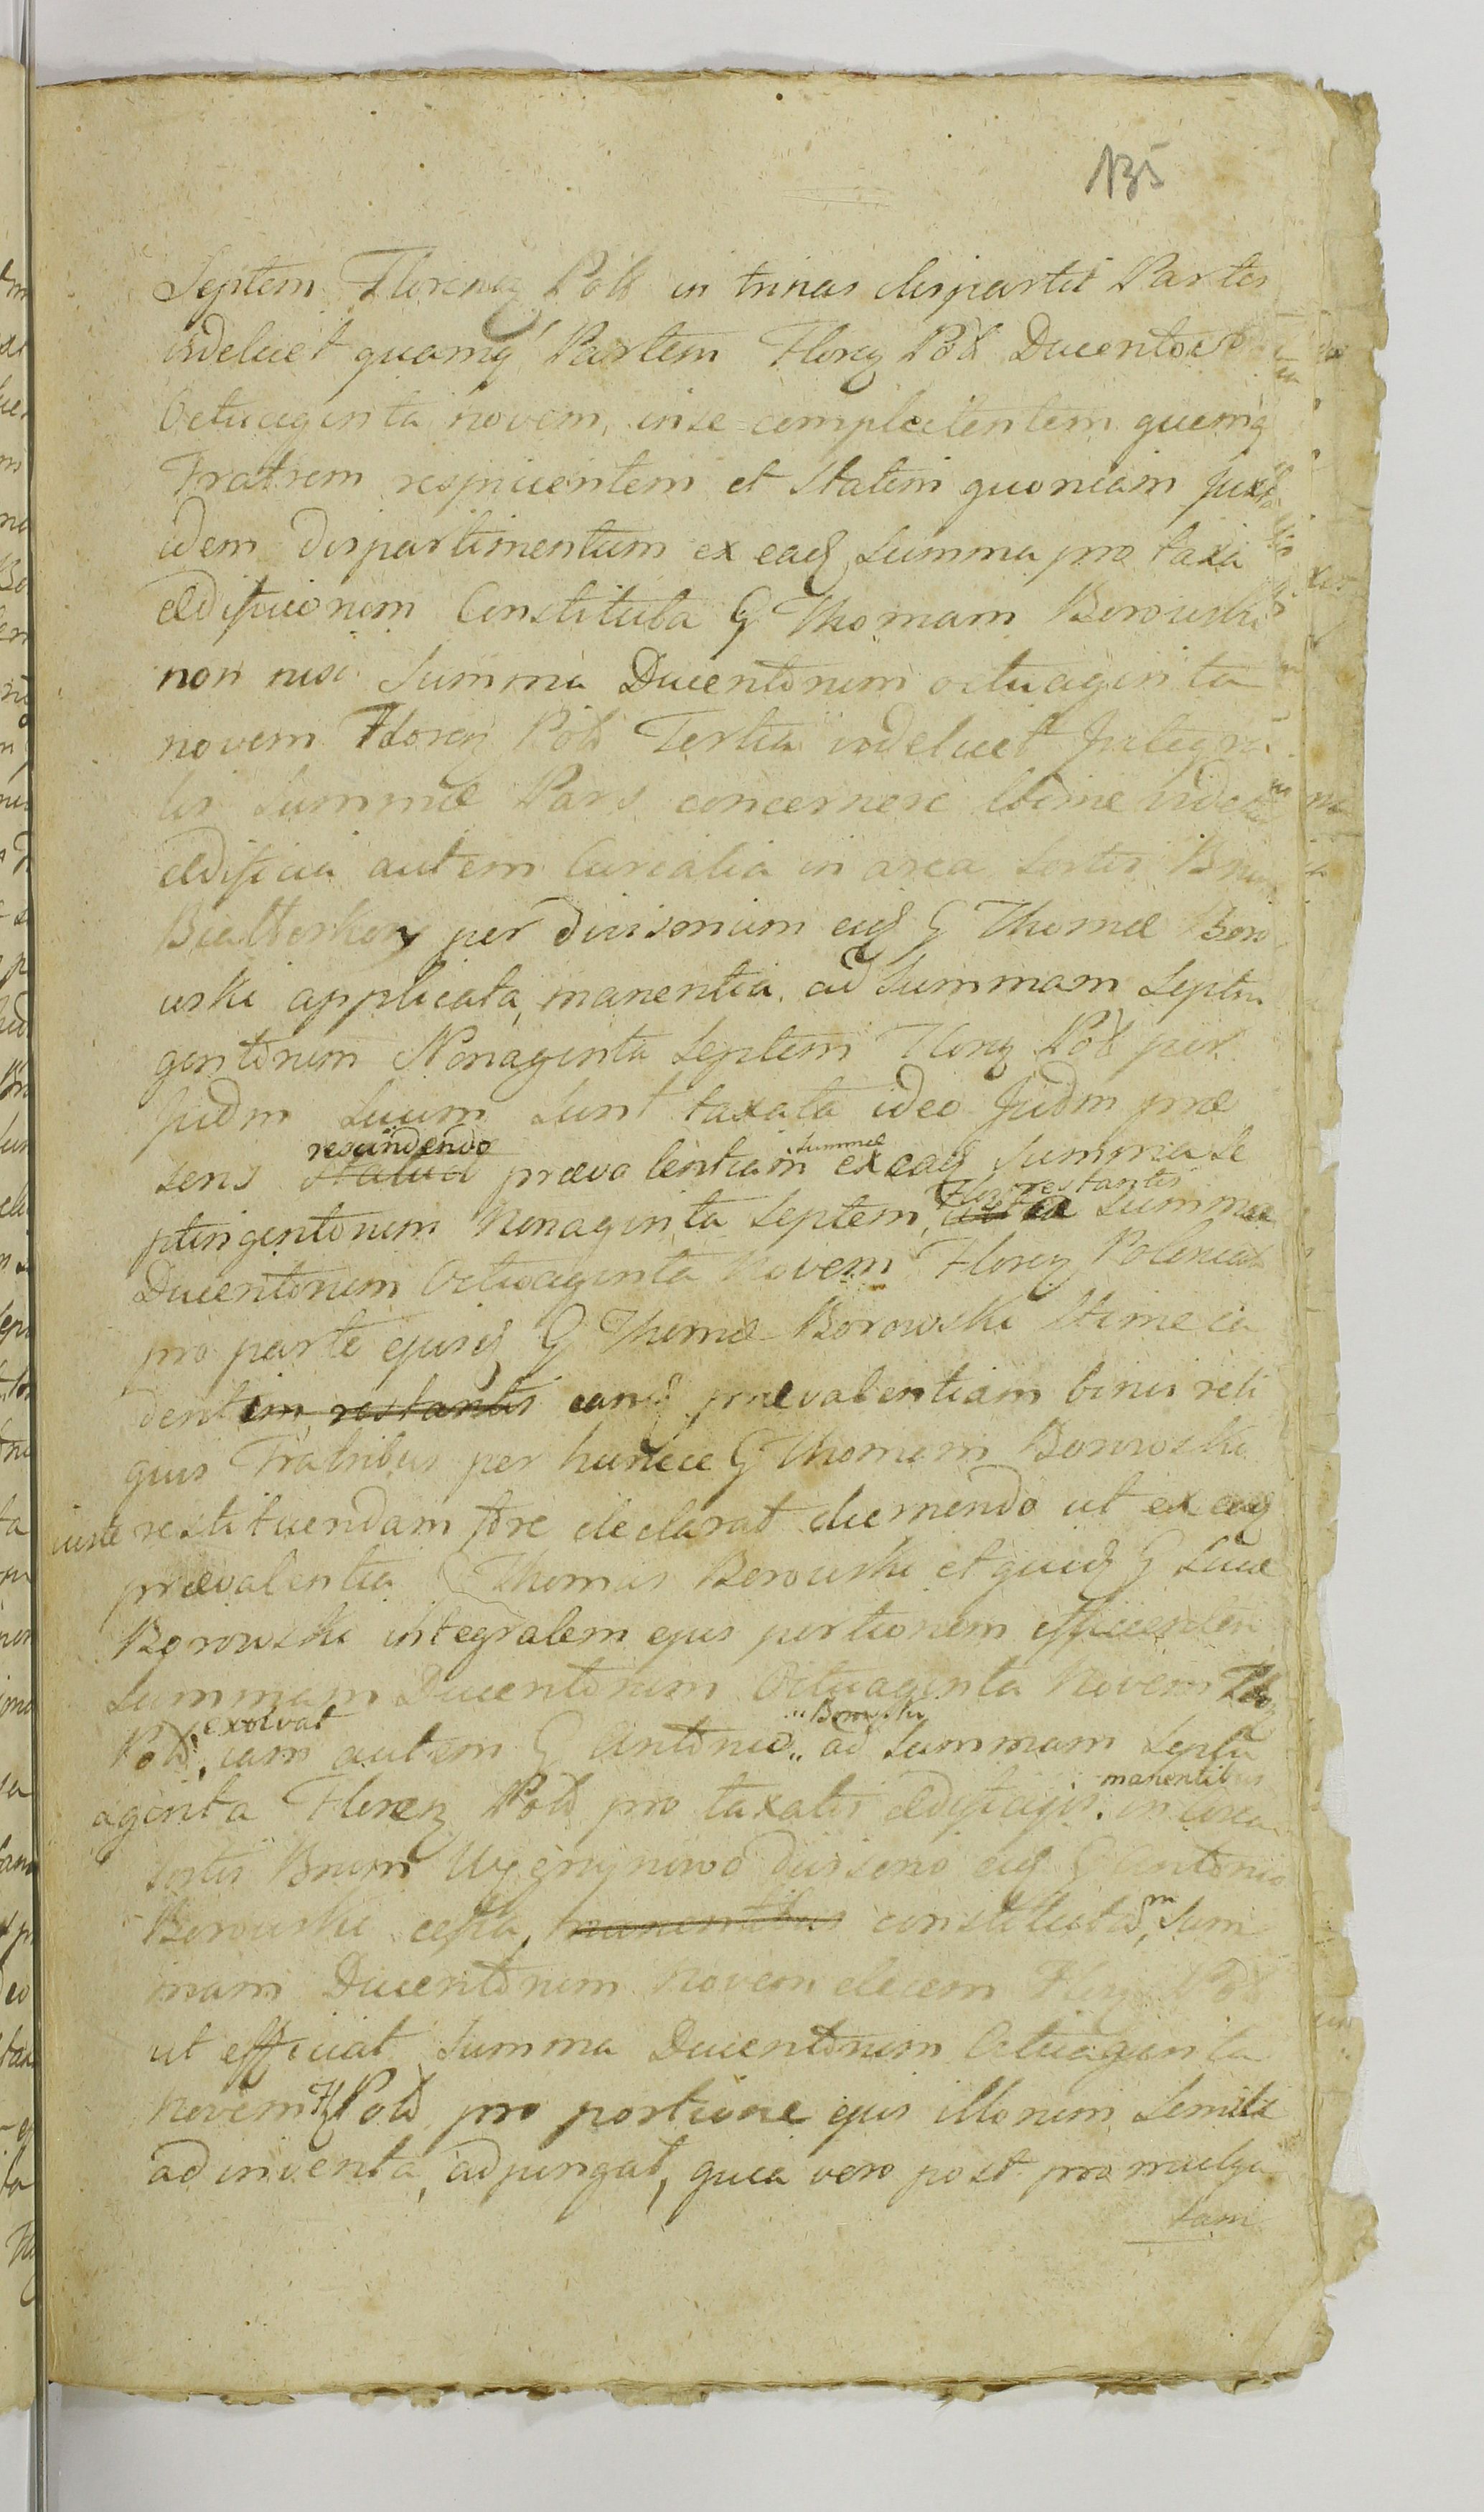 135
Septem Florenoz Polł in trinas dispartit Partes
videlicet quamq Partem Florez Polł Ducentos
Octuaginta novem, in se complectentem quemq
Fratrem respicientem et statim quoniam Juxta
idem dispartimentum ex eadq Summa pro taxa
ædificiorum Constituta G Thomam Borowski
non nisi Summa Ducentorum octuaginta
novem Florez Polł Tertia videlicet Integra
lis Summæ Pars concernere
ædificia autem Curialia in area Sortis Bnor
per divisorium eidq G Thomæ Boro
wski applicata, manentia, ad Summam Septin
gentorum Nonaginta Septem Florz Polł per
Judm suum sunt taxata ideo Judm præ
sens statuit rescindendo prævalentiam summæ ex eadq Summa Se
ptingentorum Nonaginta Septem Flor restantis Summæ
Ducentorum Octuaginta Novem Florez Polonical
pro parte ejusdq G Thomæ Borowski ca
dentem restantis eandq prævalentiam binis reli
quis Fratribus per huncce G Thomam Borowski
iuste restituendam fore declarat decernendo ut ex eadq
prævalentia Thomas Borowski et quidq G Lucæ
Borowski integralem ejus portionem efficientem
Summam Ducentorum Octuaginta Novem Flor
Polł, exolvat iam autem G Antonio Borowski ad Summam Septu
aginta Florez Polł pro taxatis ædificijs, manentibus in area
Sortis Bnorum divisorio eidq G Antonio
Borowski cessa, manentibus constitutam, Sum
mam Ducentorum Novem decem Florz Polł
ut efficiat Summa Ducentorum Octuaginta
Novem Fl Polł pro portione ejus illorum Semita
adinventa, adjungat, quia vero post promulga
tam